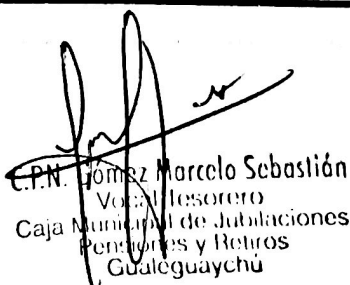 C.P.N. Gómez Marcelo Sebastián
Vocal Tesorero
Caja Municipal de Jubilaciones
Pensiones y Retiros
Gualeguaychú